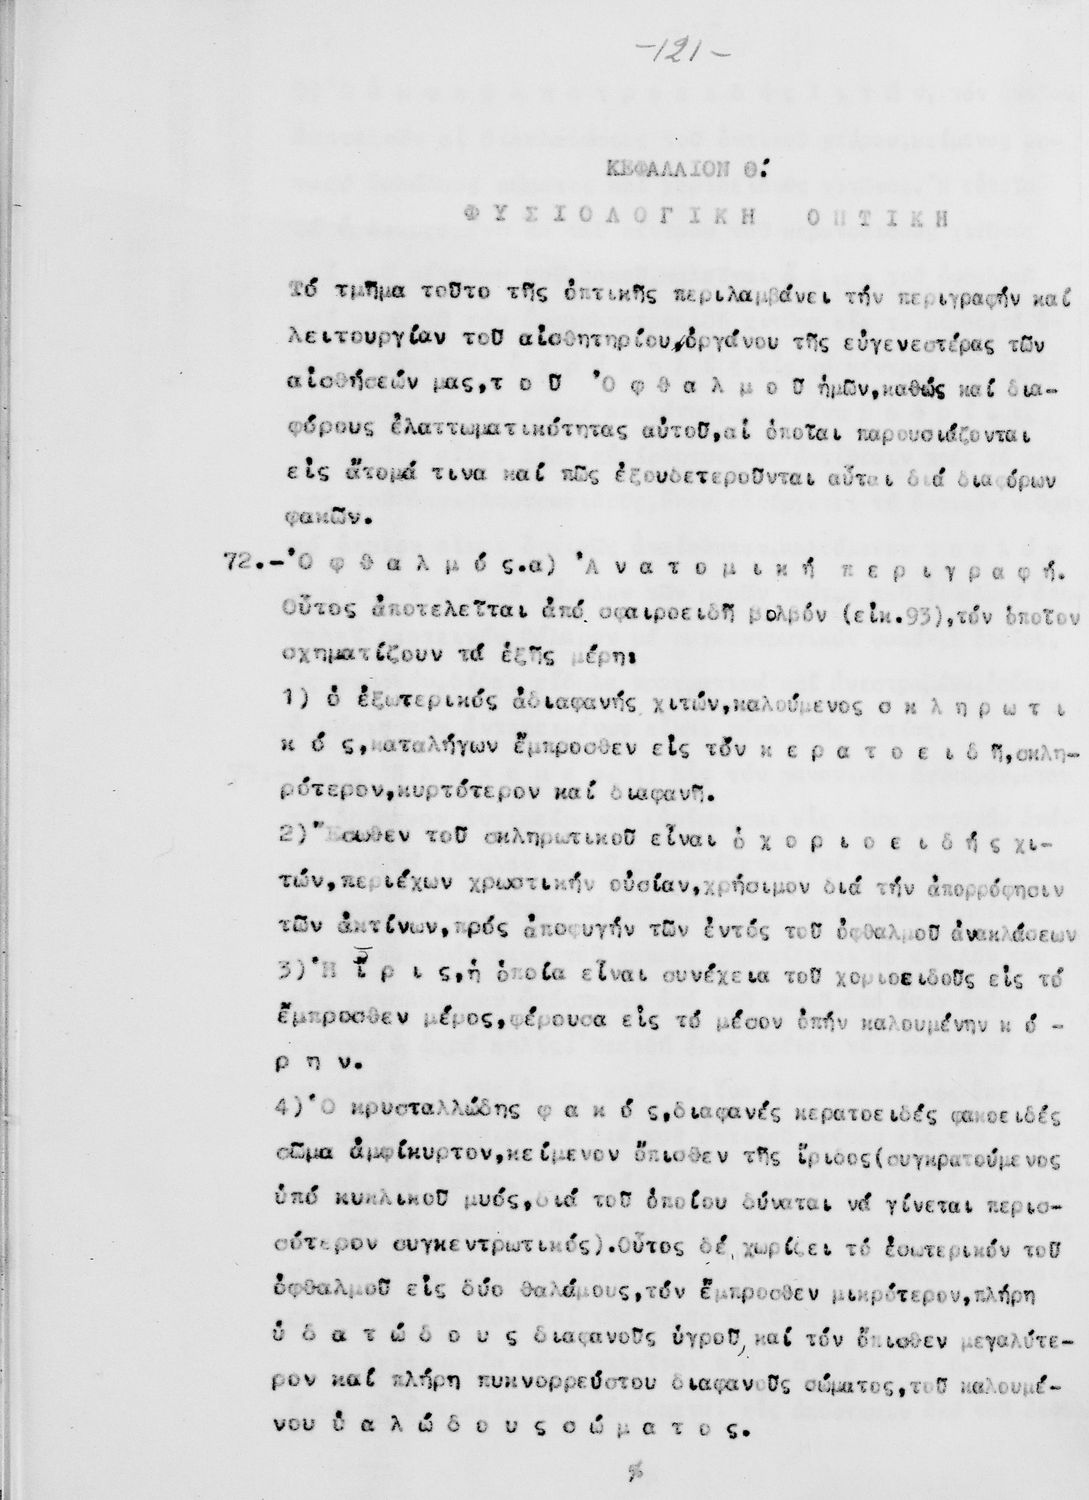 -121-
ΚΕΦΑΛΑΙΟΝ Θ:
Φ Υ Σ Ι Ο Λ Ο Γ Ι Κ Η   Ο Π Τ Ι Κ Η
Τό τμῆμα τοῦτο τῆς ὀπτικῆς περιλαμβάνει τήν περιγραφήν καί
λειτουργίαν τοῦ αἰσθητηρίου ὀργάνου τῆς εὐγενεστέρας τῶν
αἰσθήσεών μας,τ ο ῦ  Ὀ φ θ α λ μ ο ῦ ἡμῶν,καθώς καί δια-
φόρους ἐλαττωματικότητας αὐτοῦ,αἱ ὁποῖαι παρουσιάζονται
εἰς ἄτομά τινα καί πῶς ἐξουδετεροῦνται αὗται διά διαφόρων
φακῶν.
72.-Ὀ φ θ α λ μ ό ς.α) Ἀ ν α τ ο μ ι κ ή  π ε ρ ι γ ρ α φ ή.
Οὗτος ἀποτελεῖται ἀπό σφαιροειδῆ βολβόν (εἰκ.93),τόν ὁποῖον
σχηματίζουν τά ἑξῆς μέρη:
1) ὁ ἐξωτερικός ἀδιαφανής χιτών,καλούμενος σ κ λ η ρ ω τ ι
κ ό ς,καταλήγων ἔμπροσθεν εἰς τόν κ ε ρ α τ ο ε ι δ ῆ,σκλη-
ρότερον,κυρτότερον καί διαφανῆ.
2)Ἔσωθεν τοῦ σκληρωτικοῦ εἶναι ὁ χ ο ρ ι ο ε ι δ ή ς χι-
τών,περιέχων χρωστικήν οὐσίαν,χρήσιμον διά τήν ἀπορρόφησιν
τῶν ἀκτίνων,πρός ἀποφυγήν τῶν ἐντός τοῦ ὀφθαλμοῦ ἀνακλάσεων
3)Ἡ Ἶ ρ ι ς,ἡ ὁποία εἶναι συνέχεια τοῦ χοριοειδοῦς εἰς τό
ἔμπροσθεν μέρος,φέρουσα εἰς τό μέσον ὀπήν καλουμένην κ ό -
ρ η ν.
4)Ὁ κρυσταλλώδης φ α κ ό ς,διαφανές κερατοειδές φακοειδές
σῶμα ἀμφίκυρτον,κείμενον ὄπισθεν τῆς ἴριδος(συγκρατούμενος
ὑπό κυκλικοῦ μυός,διά τοῦ ὁποίου δύναται νά γίνεται περισ-
σότερον συγκεντρωτικός).Οὗτος δέ χωρίζει τό ἐσωτερικόν τοῦ
ὀφθαλμοῦ εἰς δύο θαλάμους,τόν ἔμπροσθεν μικρότερον,πλήρη
ὑ δ α τ ώ δ ο υ ς διαφανοῦς ὑγροῦ, καί τόν ὄπισθεν μεγαλύτε-
ρον καί πλήρη πυκνορρεύστου διαφανοῦς σώματος,τοῦ καλουμέ-
νου ὑ α λ ώ δ ο υ ς σ ώ μ α τ ο ς.